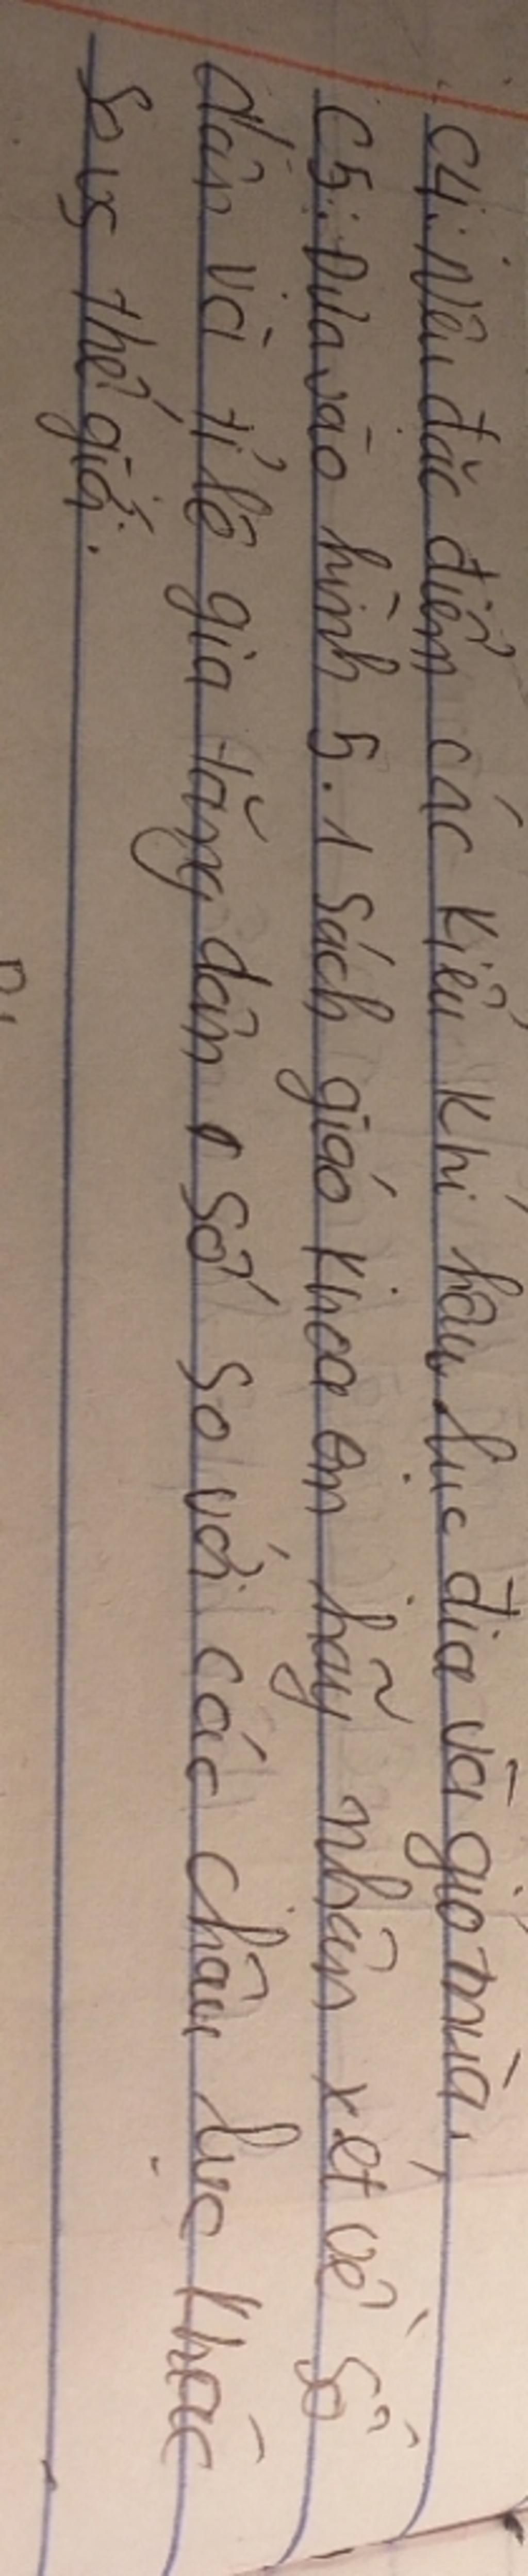 C4: Nêu đặc điểm các kiểu khí hậu lục địa và gió mùa,
C5: Dựa vào hình 5.1 sách giáo khoa em hãy nhận xét về số
dân và tỉ lệ gia tăng dân số so với các châu lục khác
so vs thế giới.